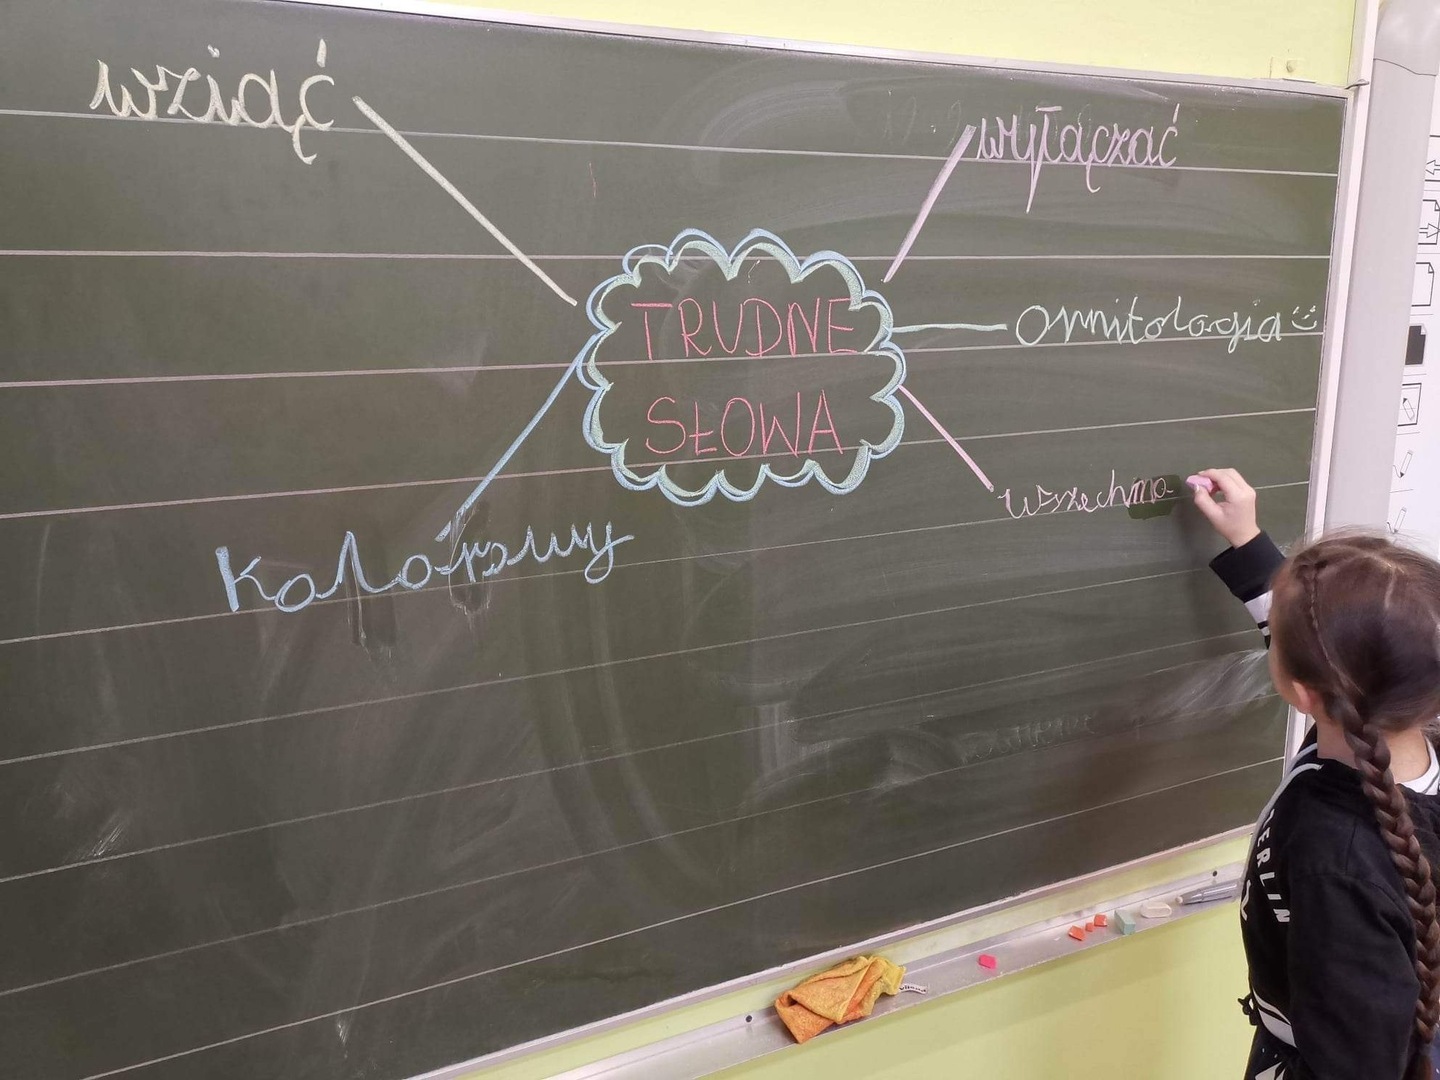 wziąć
wyłączać
TRUDNE
SŁOWA
Ornitologia
wszechmo
Kolorowy